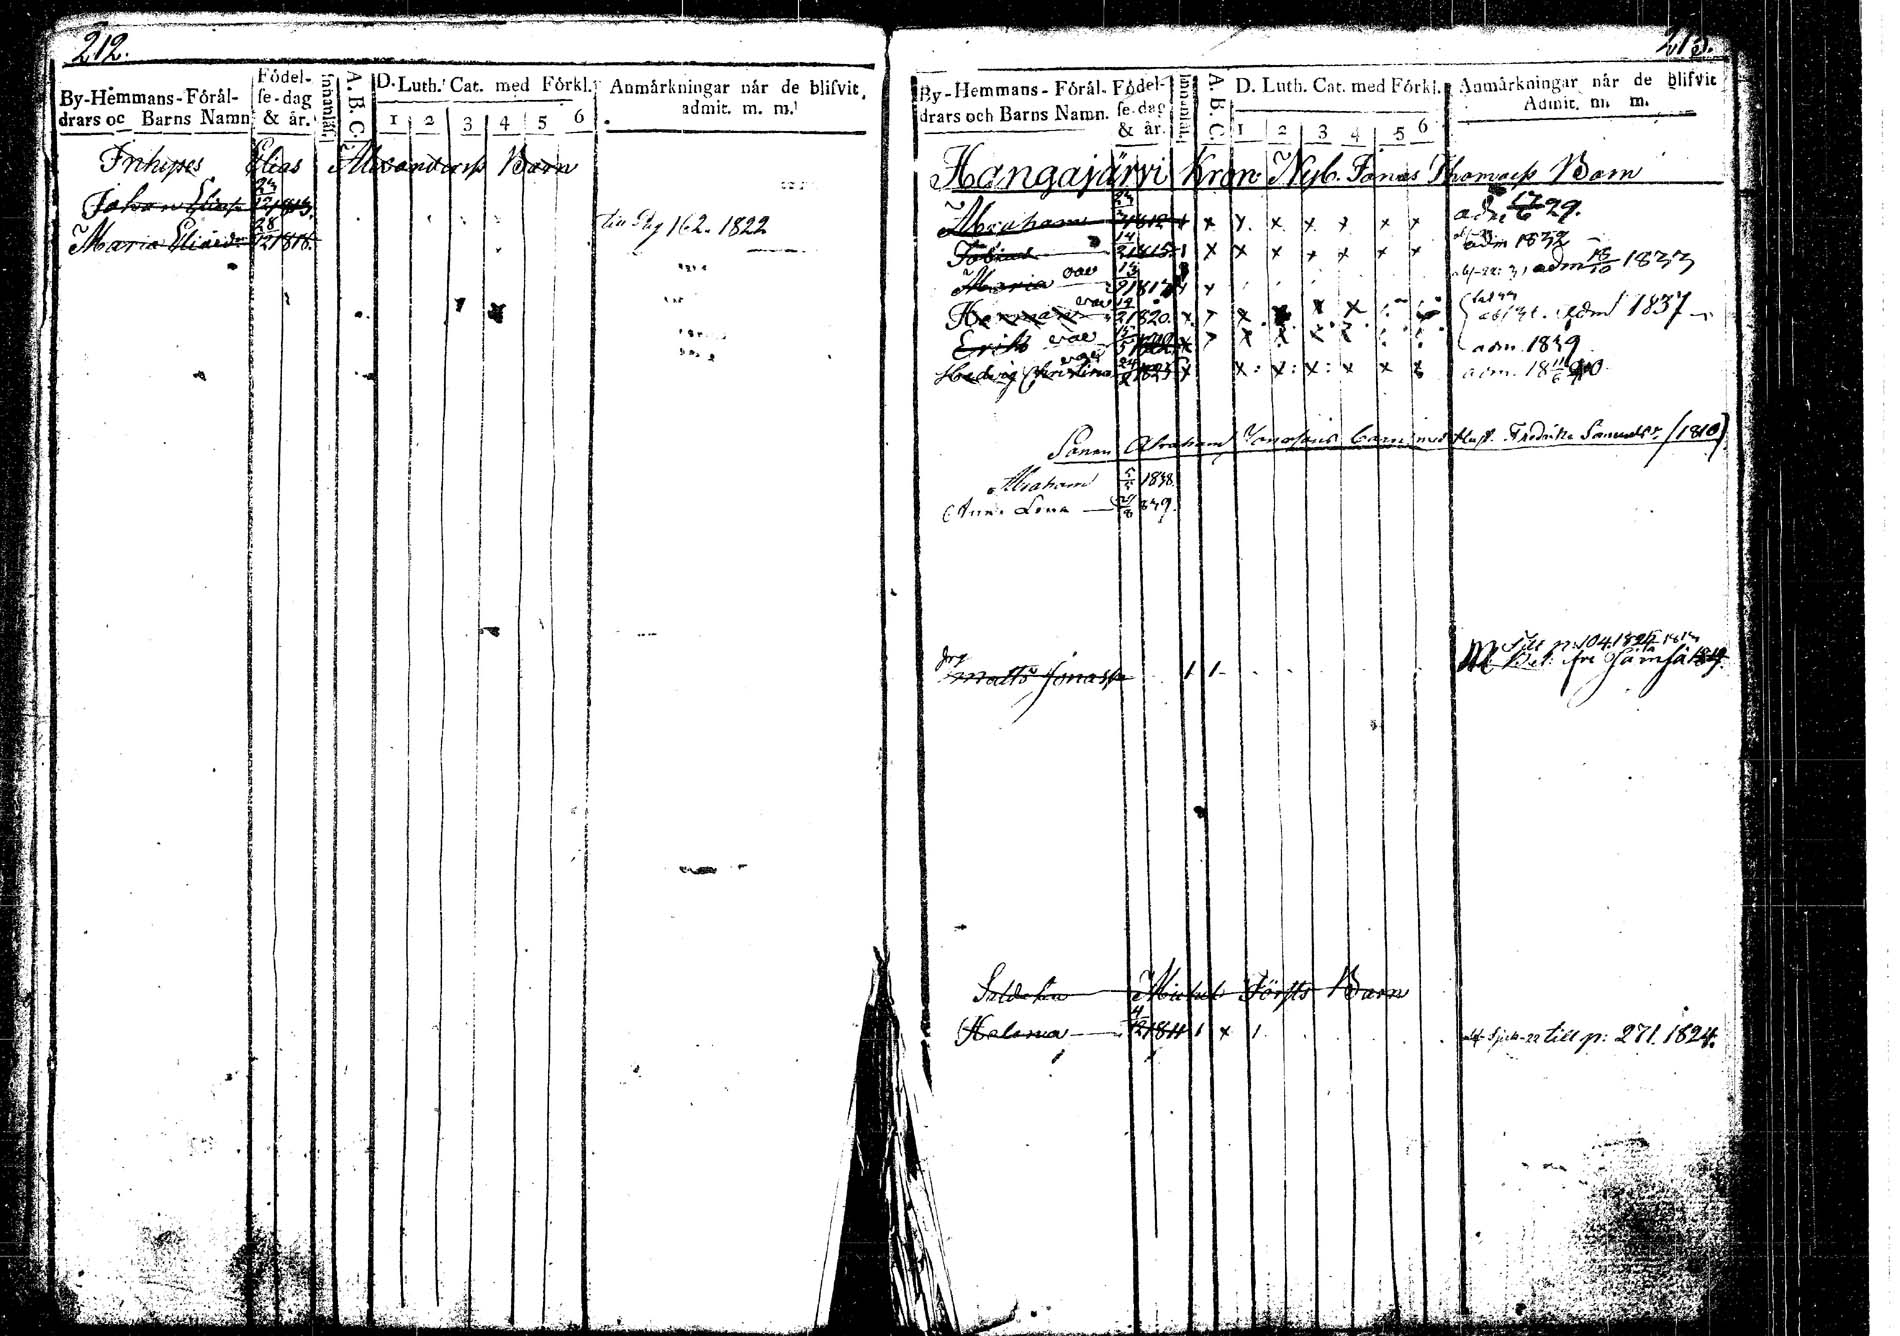 212.
By-Hemmans-Förål-
drars oc Barns Namn
Födel-
se-dag
& år.
A. B. C.
D. Luth. Cat. med Förkl.
1 2 3 4 5 6
Anmärkningar når de blifvit
admit. m. m.
Inhyses Elias Alexanderss Barn
Johan Eliass 23/12 1813.
Maria Eliasdr 28/12 1816.
till Pag 162. 1822
213.
By-Hemmans-Förål-
drars och Barns Namn.
Födel-
se-dag
& år.
Innanläsn.
A. B. C.
D. Luth. Cat. med Förkl.
1 2 3 4 5 6
Anmärkningar når de blifvit
Admit. m. m.
Hangajärvi Kron Nyb. Jonas Thomaess Barn
Abraham 1812 x x x x x x x
adm 29.
Tobias 14/2 1815 x x x x x x x
adm 1832
Maria vac 13/9 1817 x
adm 18/10 1833
Herman vac 19/2 1820. x x x x x
adm 1837
Erik vac 15/5 1822 x x x
adm. 1839
Hedwig Christina 1825 x x: x: x: x x
adm. 1840
Sonen Abraham Jonassons barn med Hust. Fredrika Samuelsdr (1810)
Abraham 5/5 1838
Anna Lena 29/8 839.
drg
Matts Jonass 1 1
Till p. 104. 1824
Bet. frn Jämsä 1819.
Soldaten Michel Förfts Barn
Helena 4/12 1811 1 x 1
till p: 271. 1824.